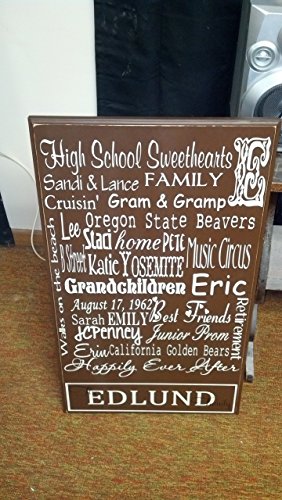 High School Sweethearts
E
Sandi & Lance FAMILY
Cruisin' Gram & Gramp
Lee Oregon State Beavers
Staci home PETE Music Circus
B Street
Katie YOSEMITE
Walks on the beach
Grandchildren Eric
August 17, 1962 Best Friends
Retirement
Sarah EMILY
JCPenney Junior Prom
Erin California Golden Bears
Happily Ever After
EDLUND